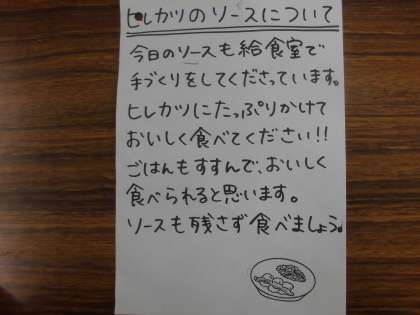 ヒレカツのソースについて
今日のソースも給食室で
手づくりをしてくださっています。
ヒレカツにたっぷりかけて
おいしく食べてください!!
ごはんもすすんで、おいしく
食べられると思います。
ソースも残さず食べましょう。